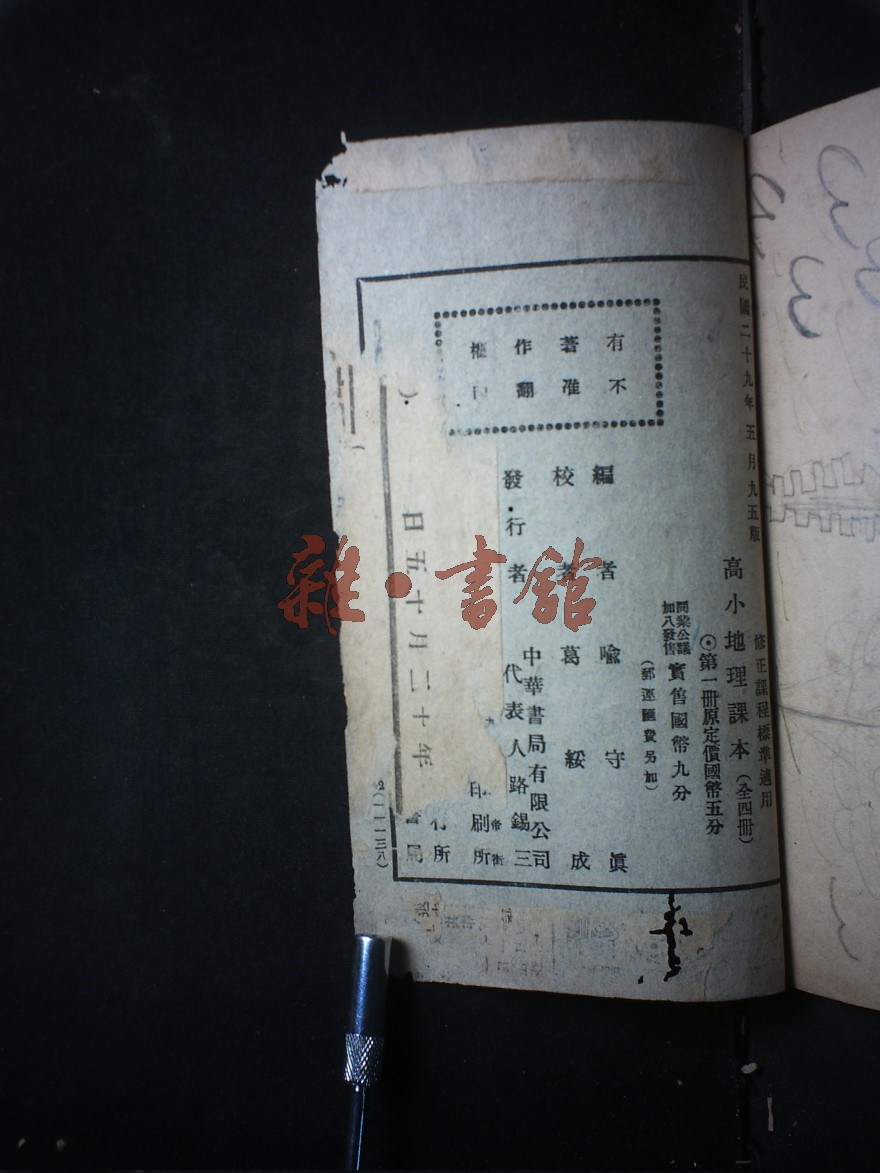 民國二十九年五月九五版
修正課程標準適用
高小地理課本（全四冊）
⊙第一冊原定價國幣五分
同業公議
加八發售
實售國幣九分
（郵運匯費另加）
有不
著准
作翻
權
編者 喻守真
校者 葛綏成
發行者 中華書局有限公司
代表人路錫三
印刷所
行所
書局
年十二月十五日
2（一一一三八）
雜·書館